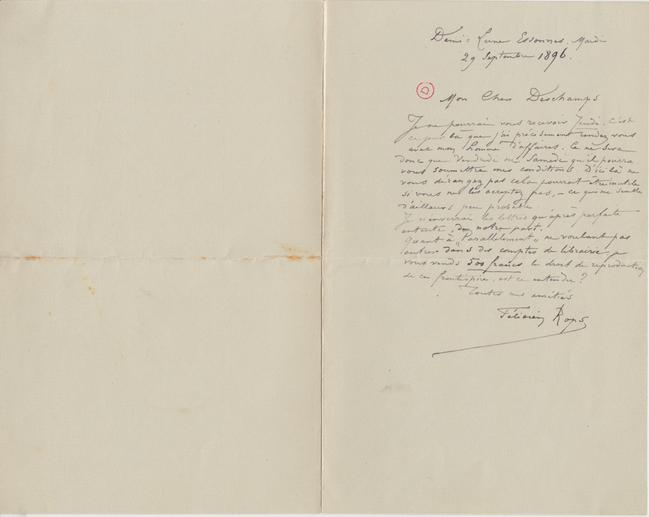 Demi-Lune Essonnes, Mardi
29 Septembre 1896.
D
Mon Cher Deschamps
Je ne pourrai vous recevoir Jeudi, c'est
ce jour là que j'ai précisément rendez vous
avec mon homme d'affaires. Ce ne sera
donc que Vendredi ou Samedi qu'il pourra
vous soumettre mes conditions. D'ici là ne
vous dérangez pas cela pourrait être inutile
si vous ne les acceptez pas, – ce qui me semble
d'ailleurs peu probable
Je n'enverrai les lettres qu'après parfaite
entente, de notre part.
Quant à „Parallèlement" ne voulant pas
entrer dans des comptes de libraire je
vous vends 500 francs le droit de reproduction
de ces frontispices, est ce entendu?
Toutes mes amitiés
Félicien Rops